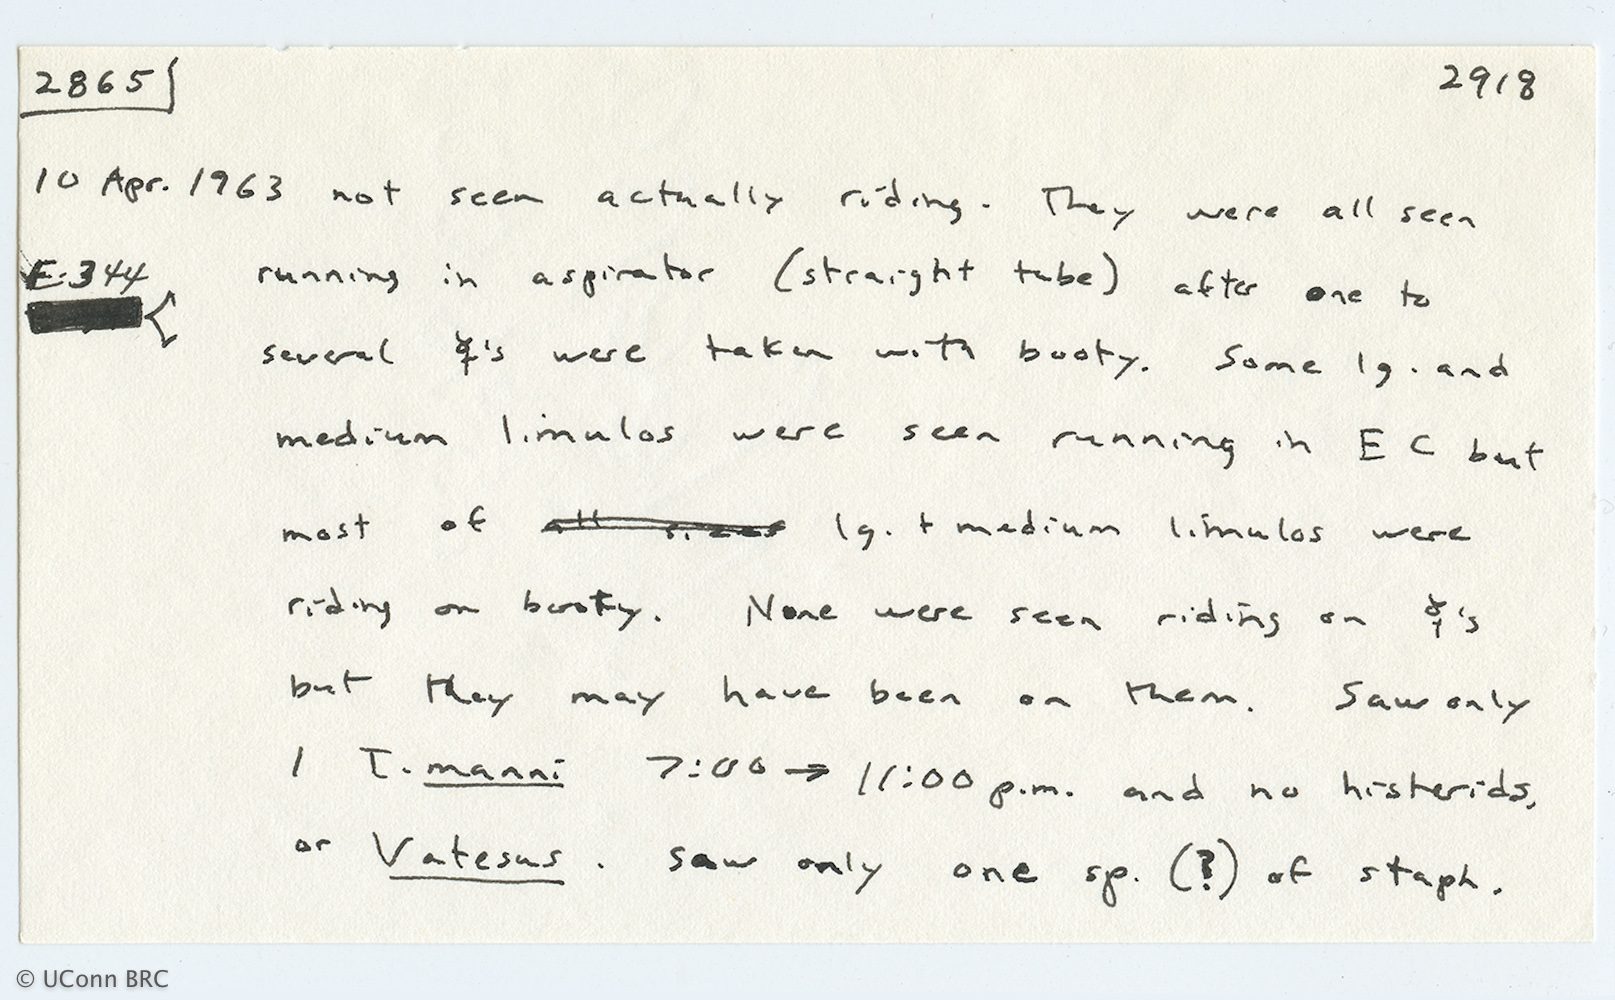 2865 2918
10 Apr. 1963 not seen actually riding. They were all seen
E-344 running in aspirator (straight tube) after one to
several ☿'s were taken with booty. Some lg. and
medium limulos were seen running in E C but
most of ~~all sizes~~ lg. + medium limulos were
riding on booty. None were seen riding on ☿'s
but they may have been on them. Saw only
1 T. manni 7:00 → 11:00 p.m. and no histerids,
or Vatesus. Saw only one sp. (?) of staph.
© UConn BRC